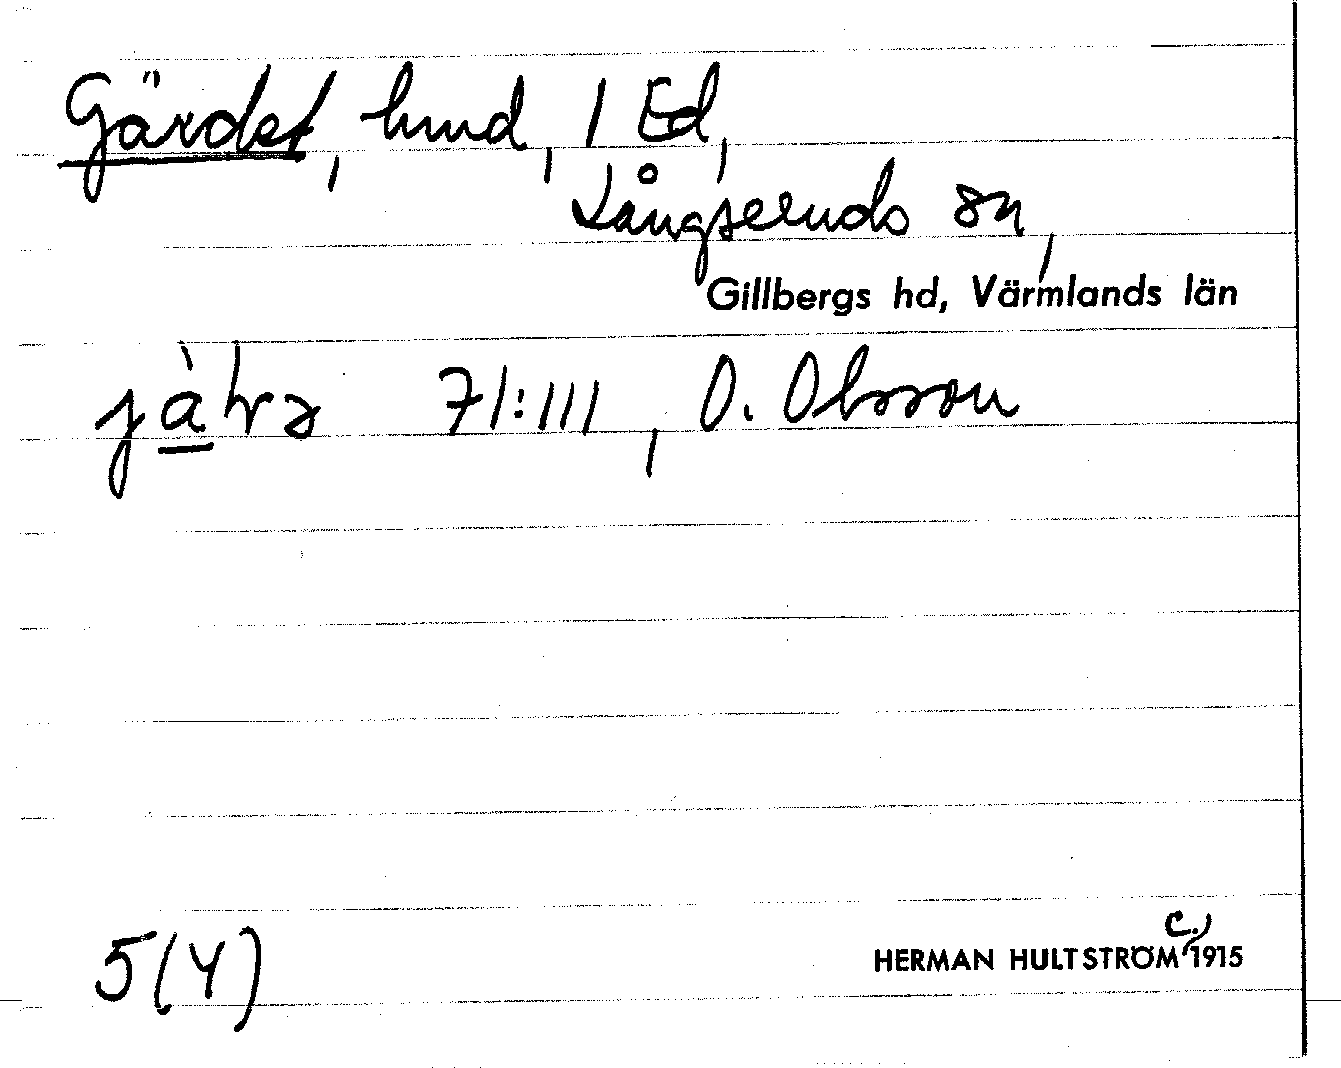 Gärdet, hmd, 1 Ed,
Långseruds sn,
Gillbergs hd, Värmlands län
71:111, O. Olsson
5(4)
HERMAN HULTSTRÖM c. 1915